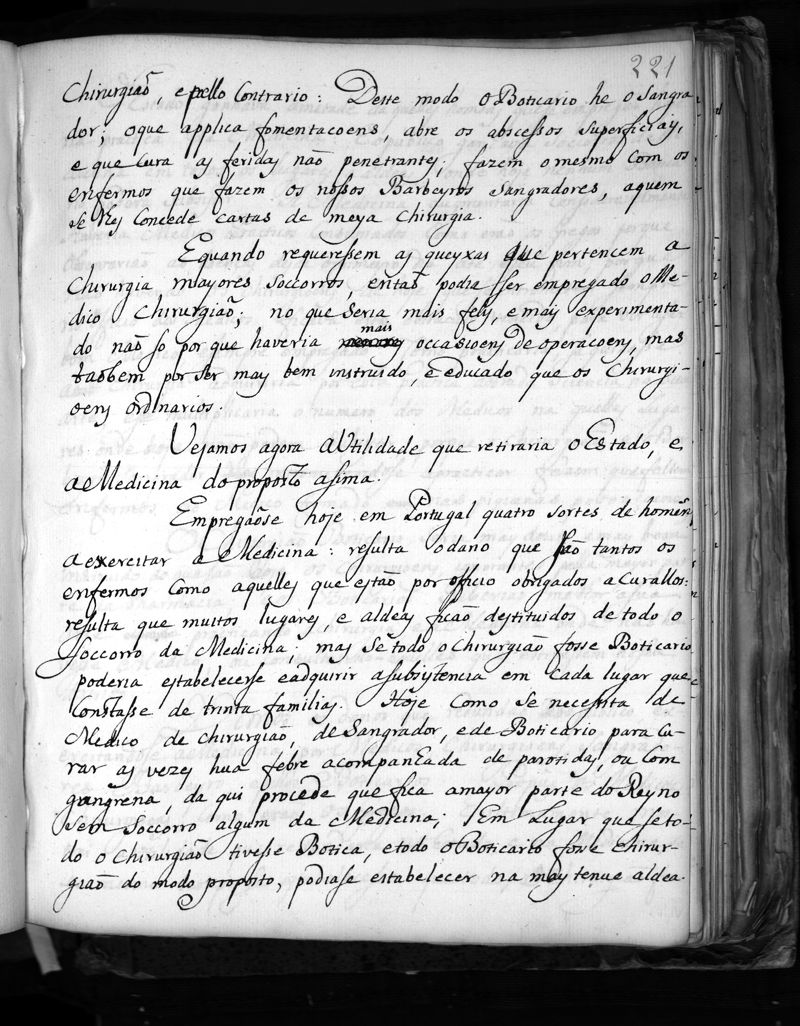 221
Chirurgiaõ, e pello Contrario: Deste modo o Boticario he o Sangra
dor; oque applica fomentacoens, abre os abscessos superficiays,
e que Cura as feridas naõ penetrantes; fazem o mesmo Com os
enfermos que fazem os nossos Barbeyros Sangradores, aquem
se lhes Concede cartas de meya Chirurgia.
Equando requeressem as queyxas que pertencem a
Chirurgia mayores Soccorros, entaõ podia ser empregado o Me-
dico Chirurgiaõ; no que seria mais fely, e mais experimenta-
do naõ so por que haveria mais occasioens de operacoens, mas
taõbem por ser may bem instruido, e educado que os Chirurgi-
oens ordinarios.
Vejamos agora a Utilidade que retiraria o Estado, e
a Medicina do proposto asima.
Empregaõse hoje em Portugal quatro sortes de homẽns
a exercitar a Medicina: resulta o dano que saõ tantos os
enfermos Como aquelles que estaõ por officio obrigados a Curallos:
resulta que muitos lugares, e aldeas ficaõ destituidos de todo o
Soccorro da Medicina; mas se todo o Chirurgiaõ fosse Boticario
poderia estabelecerse e adquirir a subsistencia em Cada lugar que
Constasse de trinta familias. Hoje Como se necessita de
Medico de Chirurgiaõ, de Sangrador, e de Boticario para Cu-
rar as vezes hua febre acompanhada de parotidas, ou Com
gangrena, da qui procede que fica a mayor parte do Reyno
sem Soccorro algum da Medicina; Em Lugar que se to-
do o Chirurgiaõ tivesse Botica, e todo o Boticario fosse chirur-
giaõ do modo proposto, podiase estabelecer na may tenue aldea.